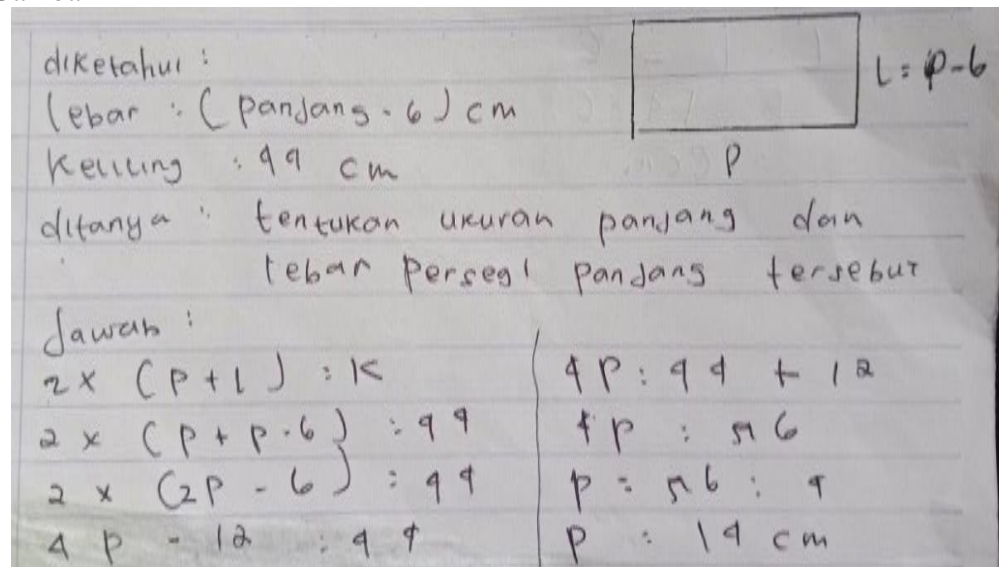 diketahui :
L = p-6
lebar : (panjang - 6) cm
Keliling : 44 cm
p
ditanya : tentukan ukuran panjang dan
lebar persegi panjang tersebut
Jawab :
2 x (p + l) : K
2 x (p + p - 6) : 44
2 x (2p - 6) : 44
4 p - 12 : 44
4p : 44 + 12
4p : 56
p = 56 : 4
p : 14 cm